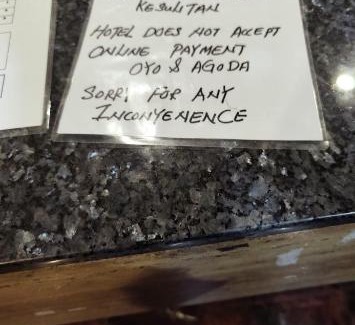 KESULITAN
HOTEL DOES NOT ACCEPT
ONLINE PAYMENT
OYO & AGODA
SORRY FOR ANY
INCONVENENCE